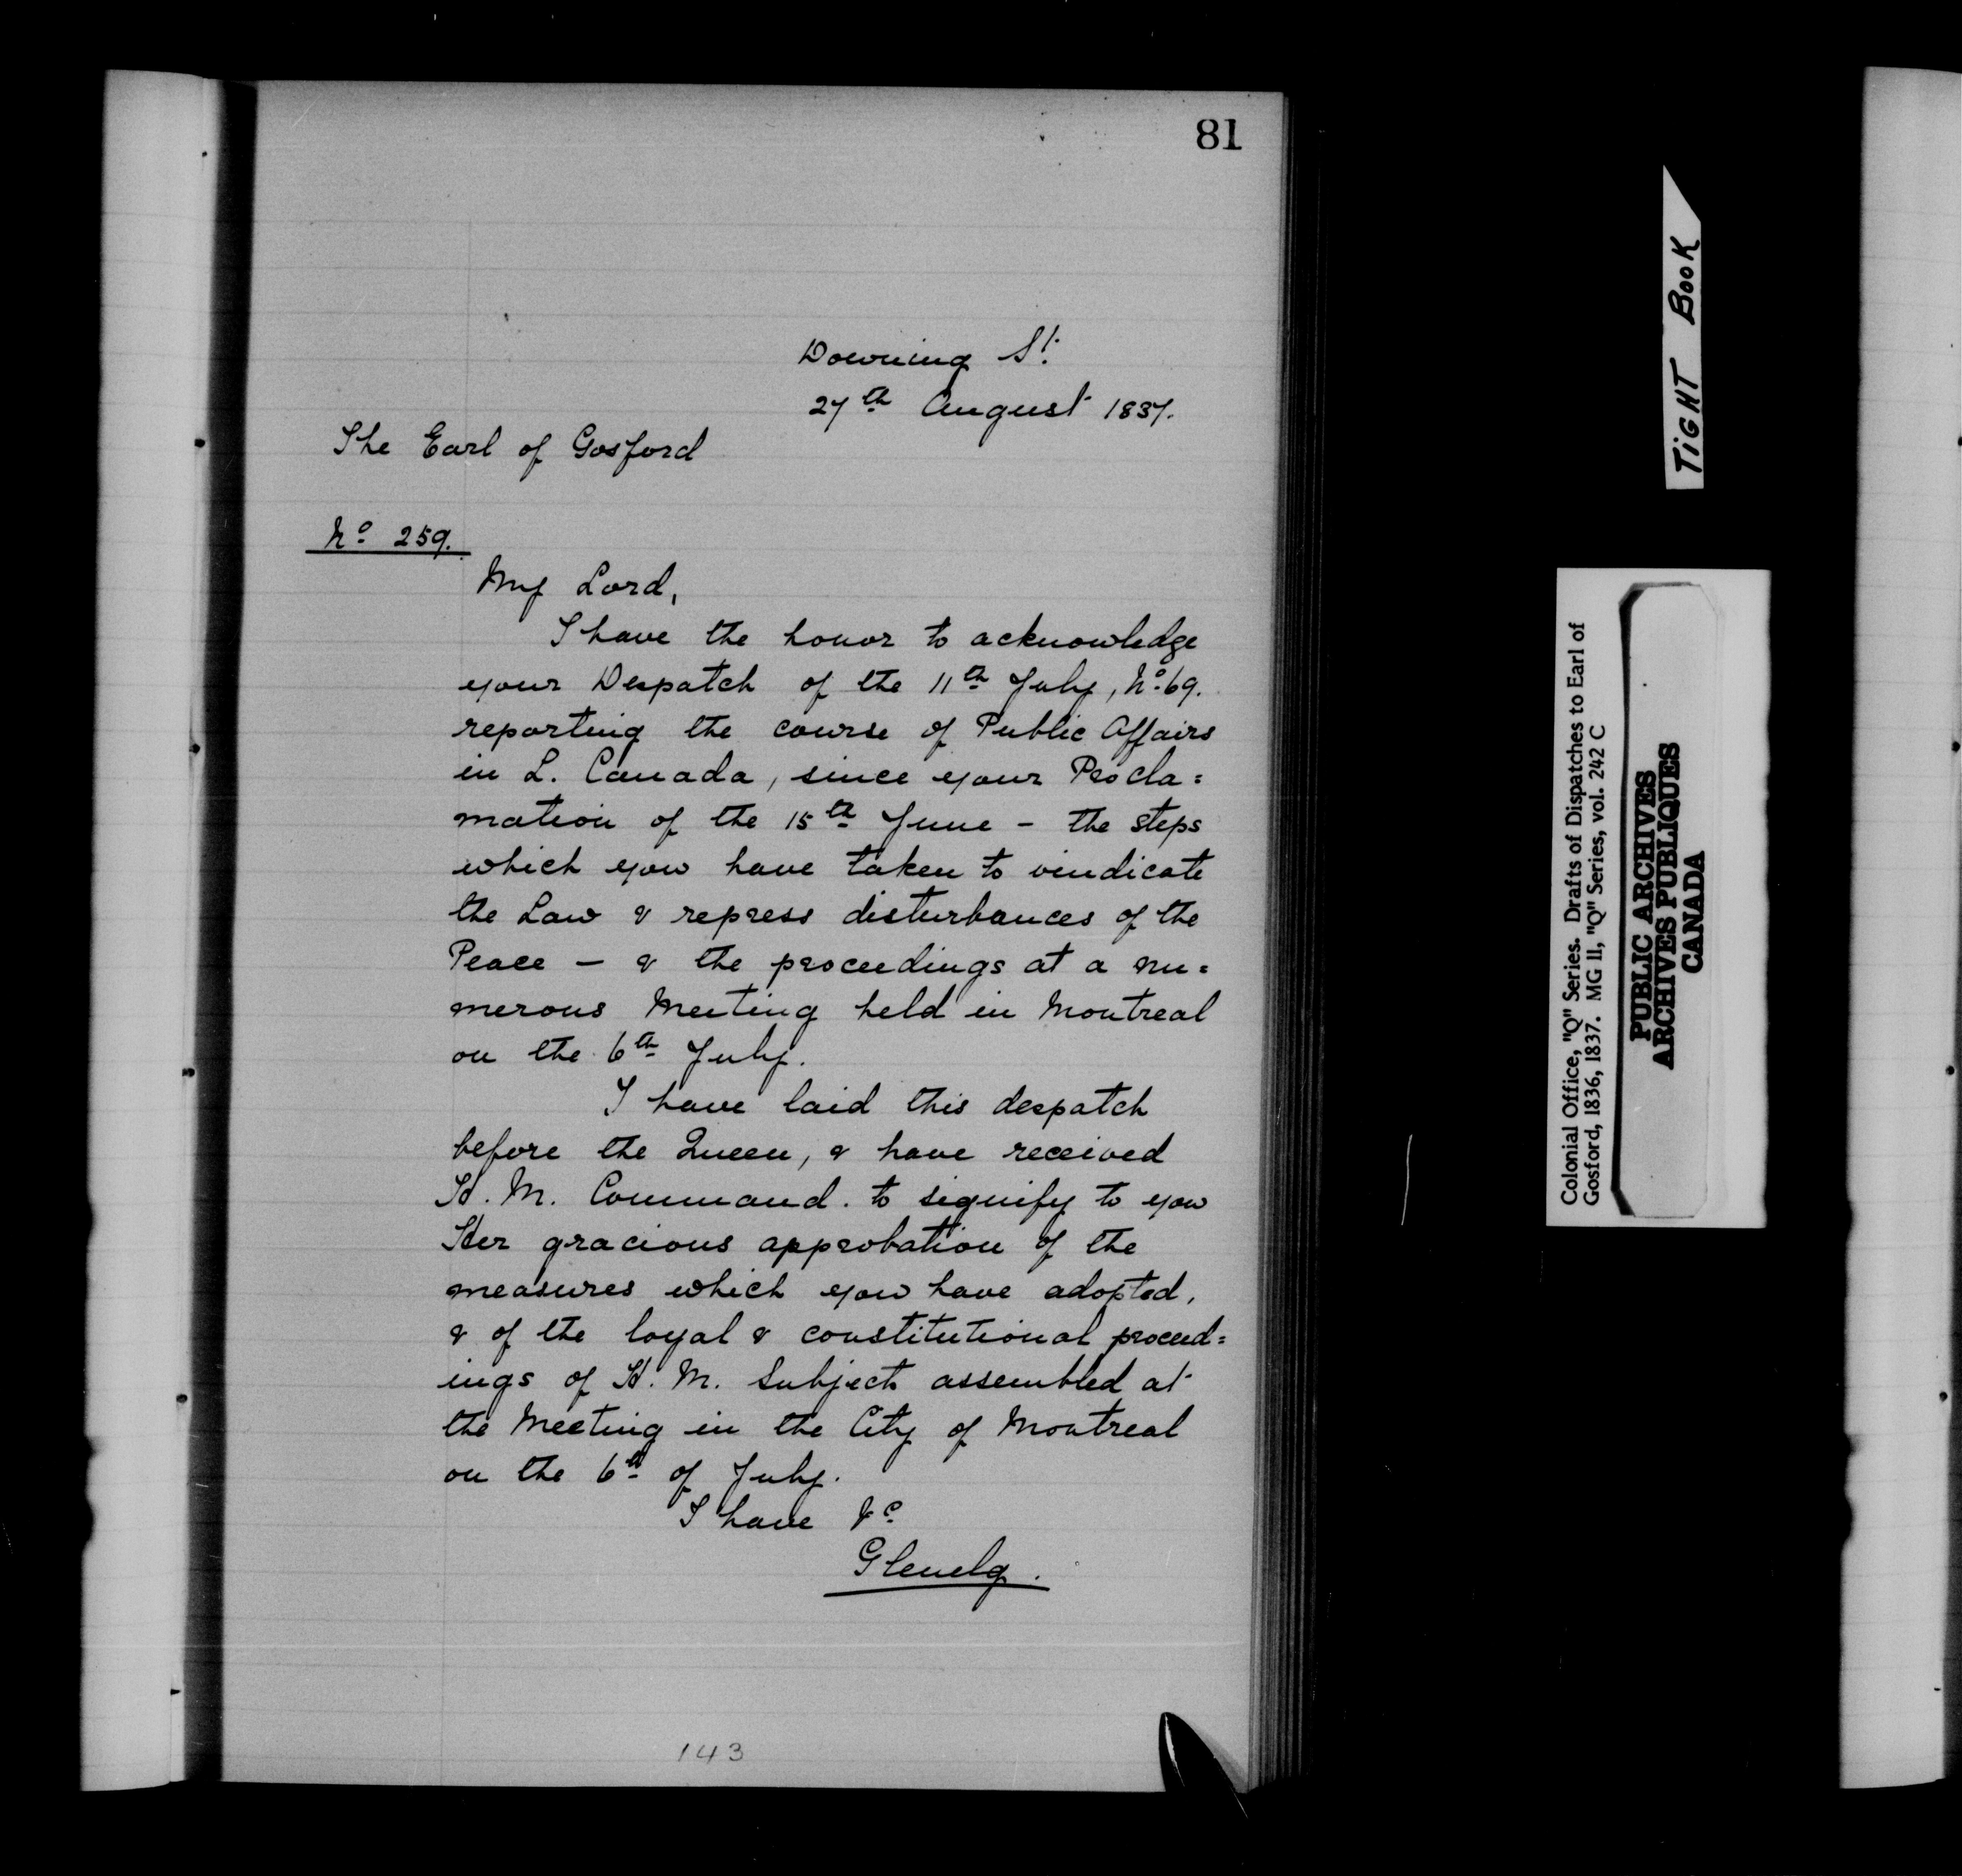 81
Downing St.
27th August 1837.
The Earl of Gosford
No. 259.
My Lord,
I have the honor to acknowledge
your Despatch of the 11th July, No. 69.
reporting the course of Public Affairs
in L. Canada, since your Procla=
mation of the 15th June - the steps
which you have taken to vindicate
the Law & repress disturbances of the
Peace - & the proceedings at a nu=
merous Meeting held in Montreal
on the 6th July.
I have laid this despatch
before the Queen, & have received
H. M. Command. to signify to you
Her gracious approbation of the
measures which you have adopted,
& of the loyal & constitutional proceed=
ings of H. M. Subjects assembled at
the Meeting in the City of Montreal
on the 6th of July.
I have &c
Glenelg.
143
TIGHT BOOK
Colonial Office, "Q" Series. Drafts of Dispatches to Earl of
Gosford, 1836, 1837. MG 11, "Q" Series, vol. 242 C
PUBLIC ARCHIVES
ARCHIVES PUBLIQUES
CANADA